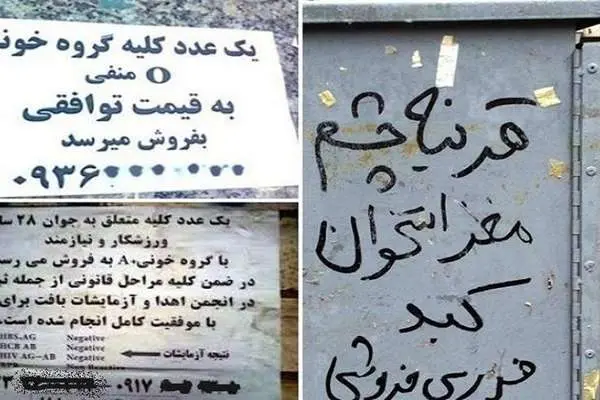 یک عدد کلیه گروه خونی
O منفی
به قیمت توافقی
بفروش میرسد
۰۹۳۶
یک عدد کلیه متعلق به جوان ۲۸ سا
ورزشکار و نیازمند
با گروه خونی A+ به فروش می رسد
در ضمن کلیه مراحل قانونی از جمله ثب
در انجمن اهدا و آزمایشات بافت برای
با موفقیت کامل انجام شده است.
HBS,AG Negative
HCB AB Negative
HIV AG-AB Negative
نتیجه آزمایشات
۰۹۱۷
قرنیه چشم
مغز استخوان
کبد
فوری فروشی